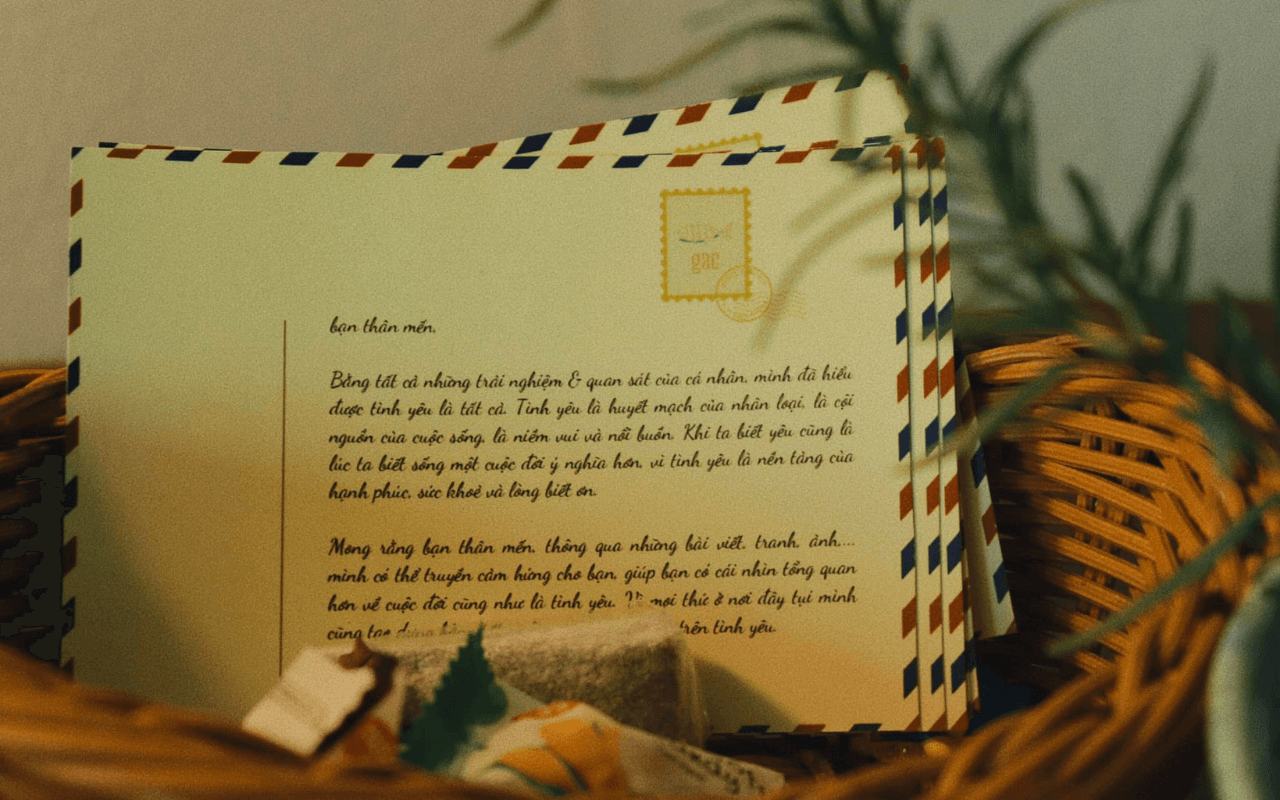 gác
bạn thân mến,
Bằng tất cả những trải nghiệm & quan sát của cá nhân, mình đã hiểu
được tình yêu là tất cả. Tình yêu là huyết mạch của nhân loại, là cội
nguồn của cuộc sống, là niềm vui và nỗi buồn. Khi ta biết yêu cũng là
lúc ta biết sống một cuộc đời ý nghĩa hơn, vì tình yêu là nền tảng của
hạnh phúc, sức khoẻ và lòng biết ơn.
Mong rằng bạn thân mến, thông qua những bài viết, tranh, ảnh,...
mình có thể truyền cảm hứng cho bạn, giúp bạn có cái nhìn tổng quan
hơn về cuộc đời cũng như là tình yêu. Vì mọi thứ ở nơi đây tụi mình
cũng tạo trên tình yêu.